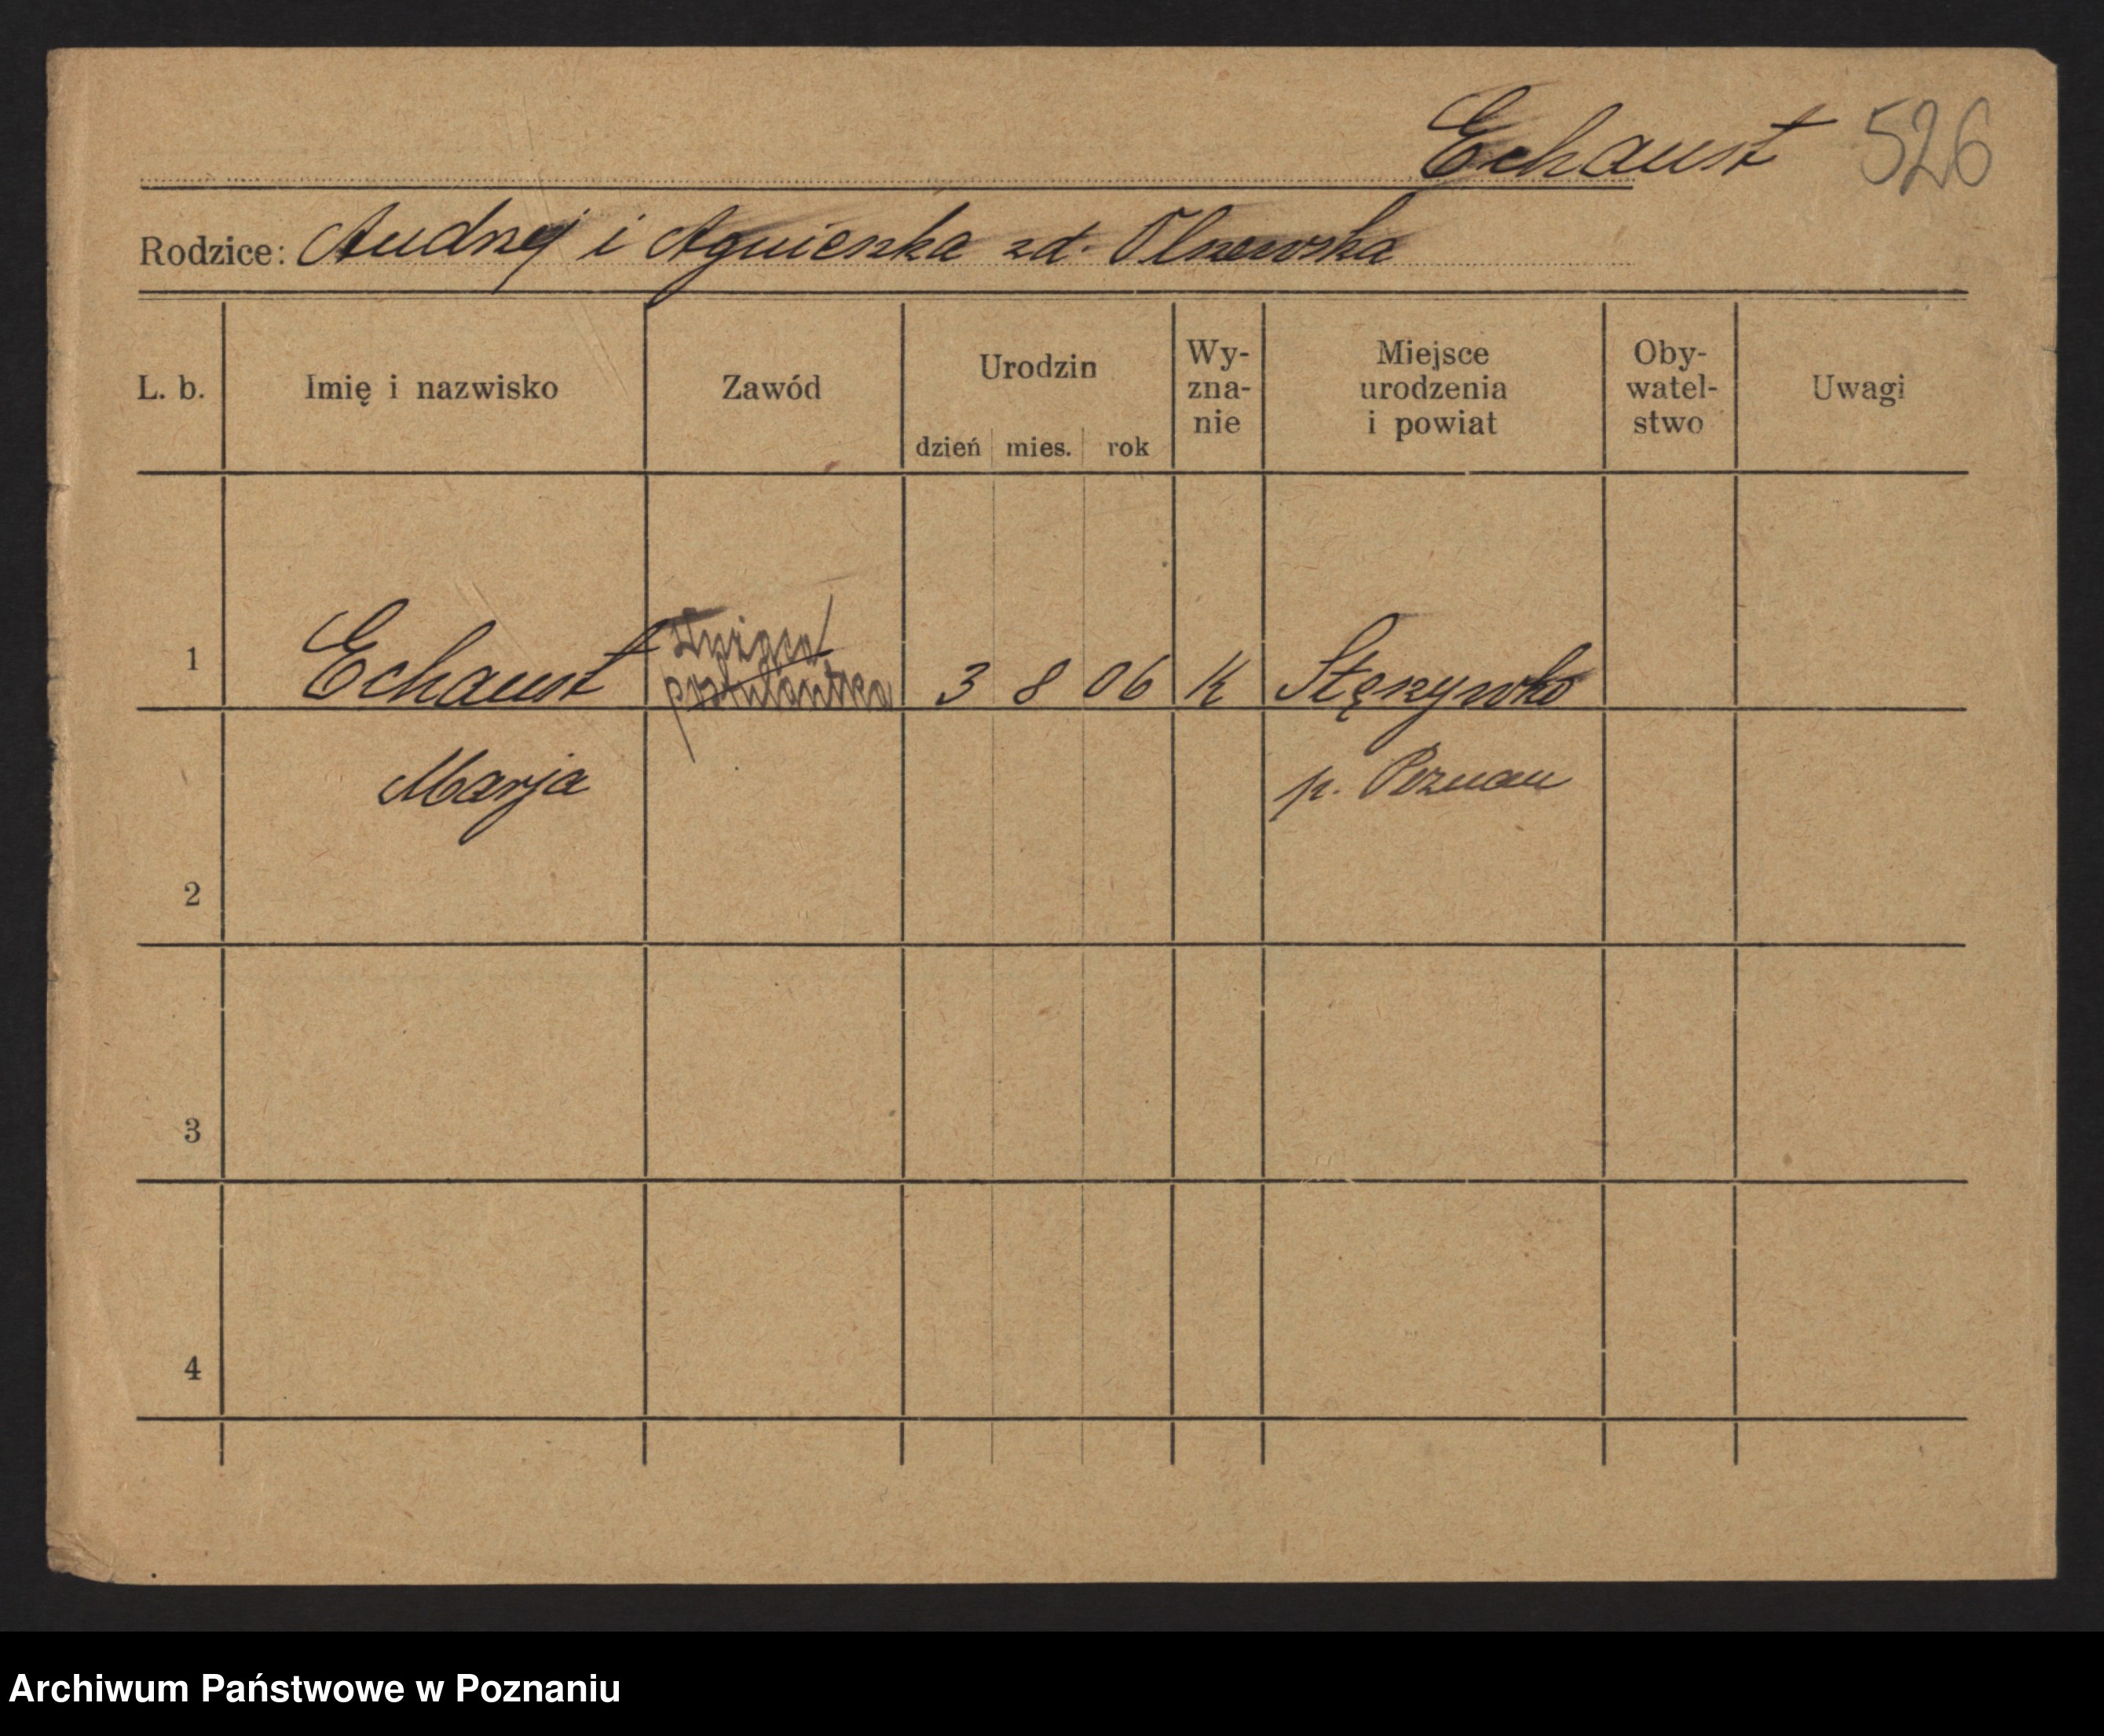 Echaust 526
Rodzice: Andrzej i Agnieszka zd. Olszewska
L. b. Imię i nazwisko Zawód Urodzin dzień mies. rok Wy-zna-nie Miejsce urodzenia i powiat Oby-watel-stwo Uwagi
służąca
1 Echaust postulantka 3 8 06 K Stęszywko
Marja p. Poznan
2
3
4
Archiwum Państwowe w Poznaniu